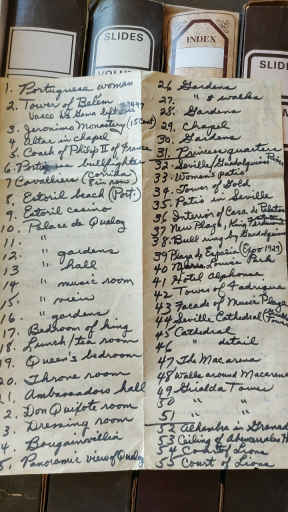 SLIDES
INDEX
SLIDES
1. Portuguese woman
2. Tower of Belem
Vasco da Gama left
3. Jeronimo Monastery (15 Cent)
4. Altar in chapel
5. Coach of Philip II of France
6. bullfighter
7. Cavalliers (Corridas
8 in row)
8. Estoril beach (Port.)
9. Estoril casino
10. Palace de Queloz
11. "
12 " gardens
13 " hall
14 " music room
15. " "
16. " gardens
17. Bedroom of king
18. Lunch/tea room
19. Queen's bedroom
20. Throne room
21. Ambassadors hall
2. Don Quixote room
3. Dressing room
4. Bougainvillia
5. Panoramic view of Queloz
26. Gardens
27. " & walks
28. Gardens
29. Chapel
30. Gardens
31. Business quarters
32. Seville, Guadalquivir River
33. Woman's patio
34. Tower of Gold
35. Patio in Seville
36. Interior of Casa de Pilatos
37 New Plaza, King
38. Bull ring by Guadalquivir
39 Plaza de España (Expo 1929)
40 Maria Luisa Park
41 Hotel Alphonso
42 Tower of
43 Facade of Music Plaza
44 Seville, Cathedral
45 Cathedral
46 " detail
47 The Macarena
48 Walls around Macarena
49 Giralda Tower
50 " "
51 " "
52 Alhambra in Granada
53 Ceiling of
54 Court of Lions
55 Court of Lions